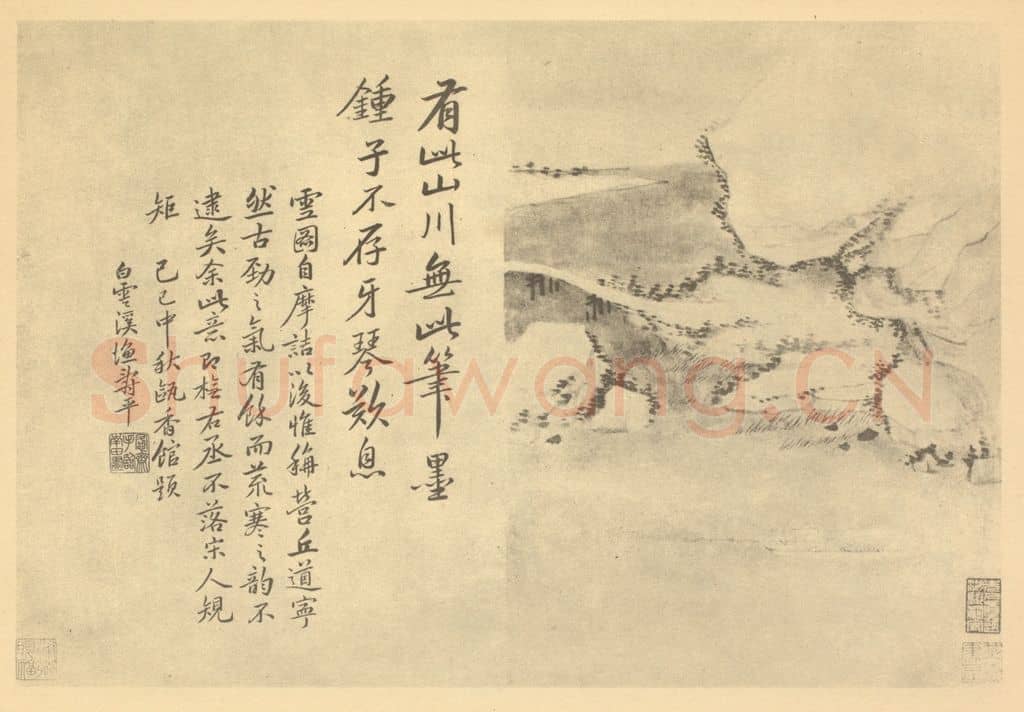 有此山川無此筆墨
鍾子不存牙琴歎息
雪圖自摩詰以後惟稱營丘道寧
然古勁之氣有餘而荒寒之韵不
逮矣余此意即橅右丞不落宋人規
矩
己巳中秋甌香館題
白雲溪漁壽平
Shufawang.CN